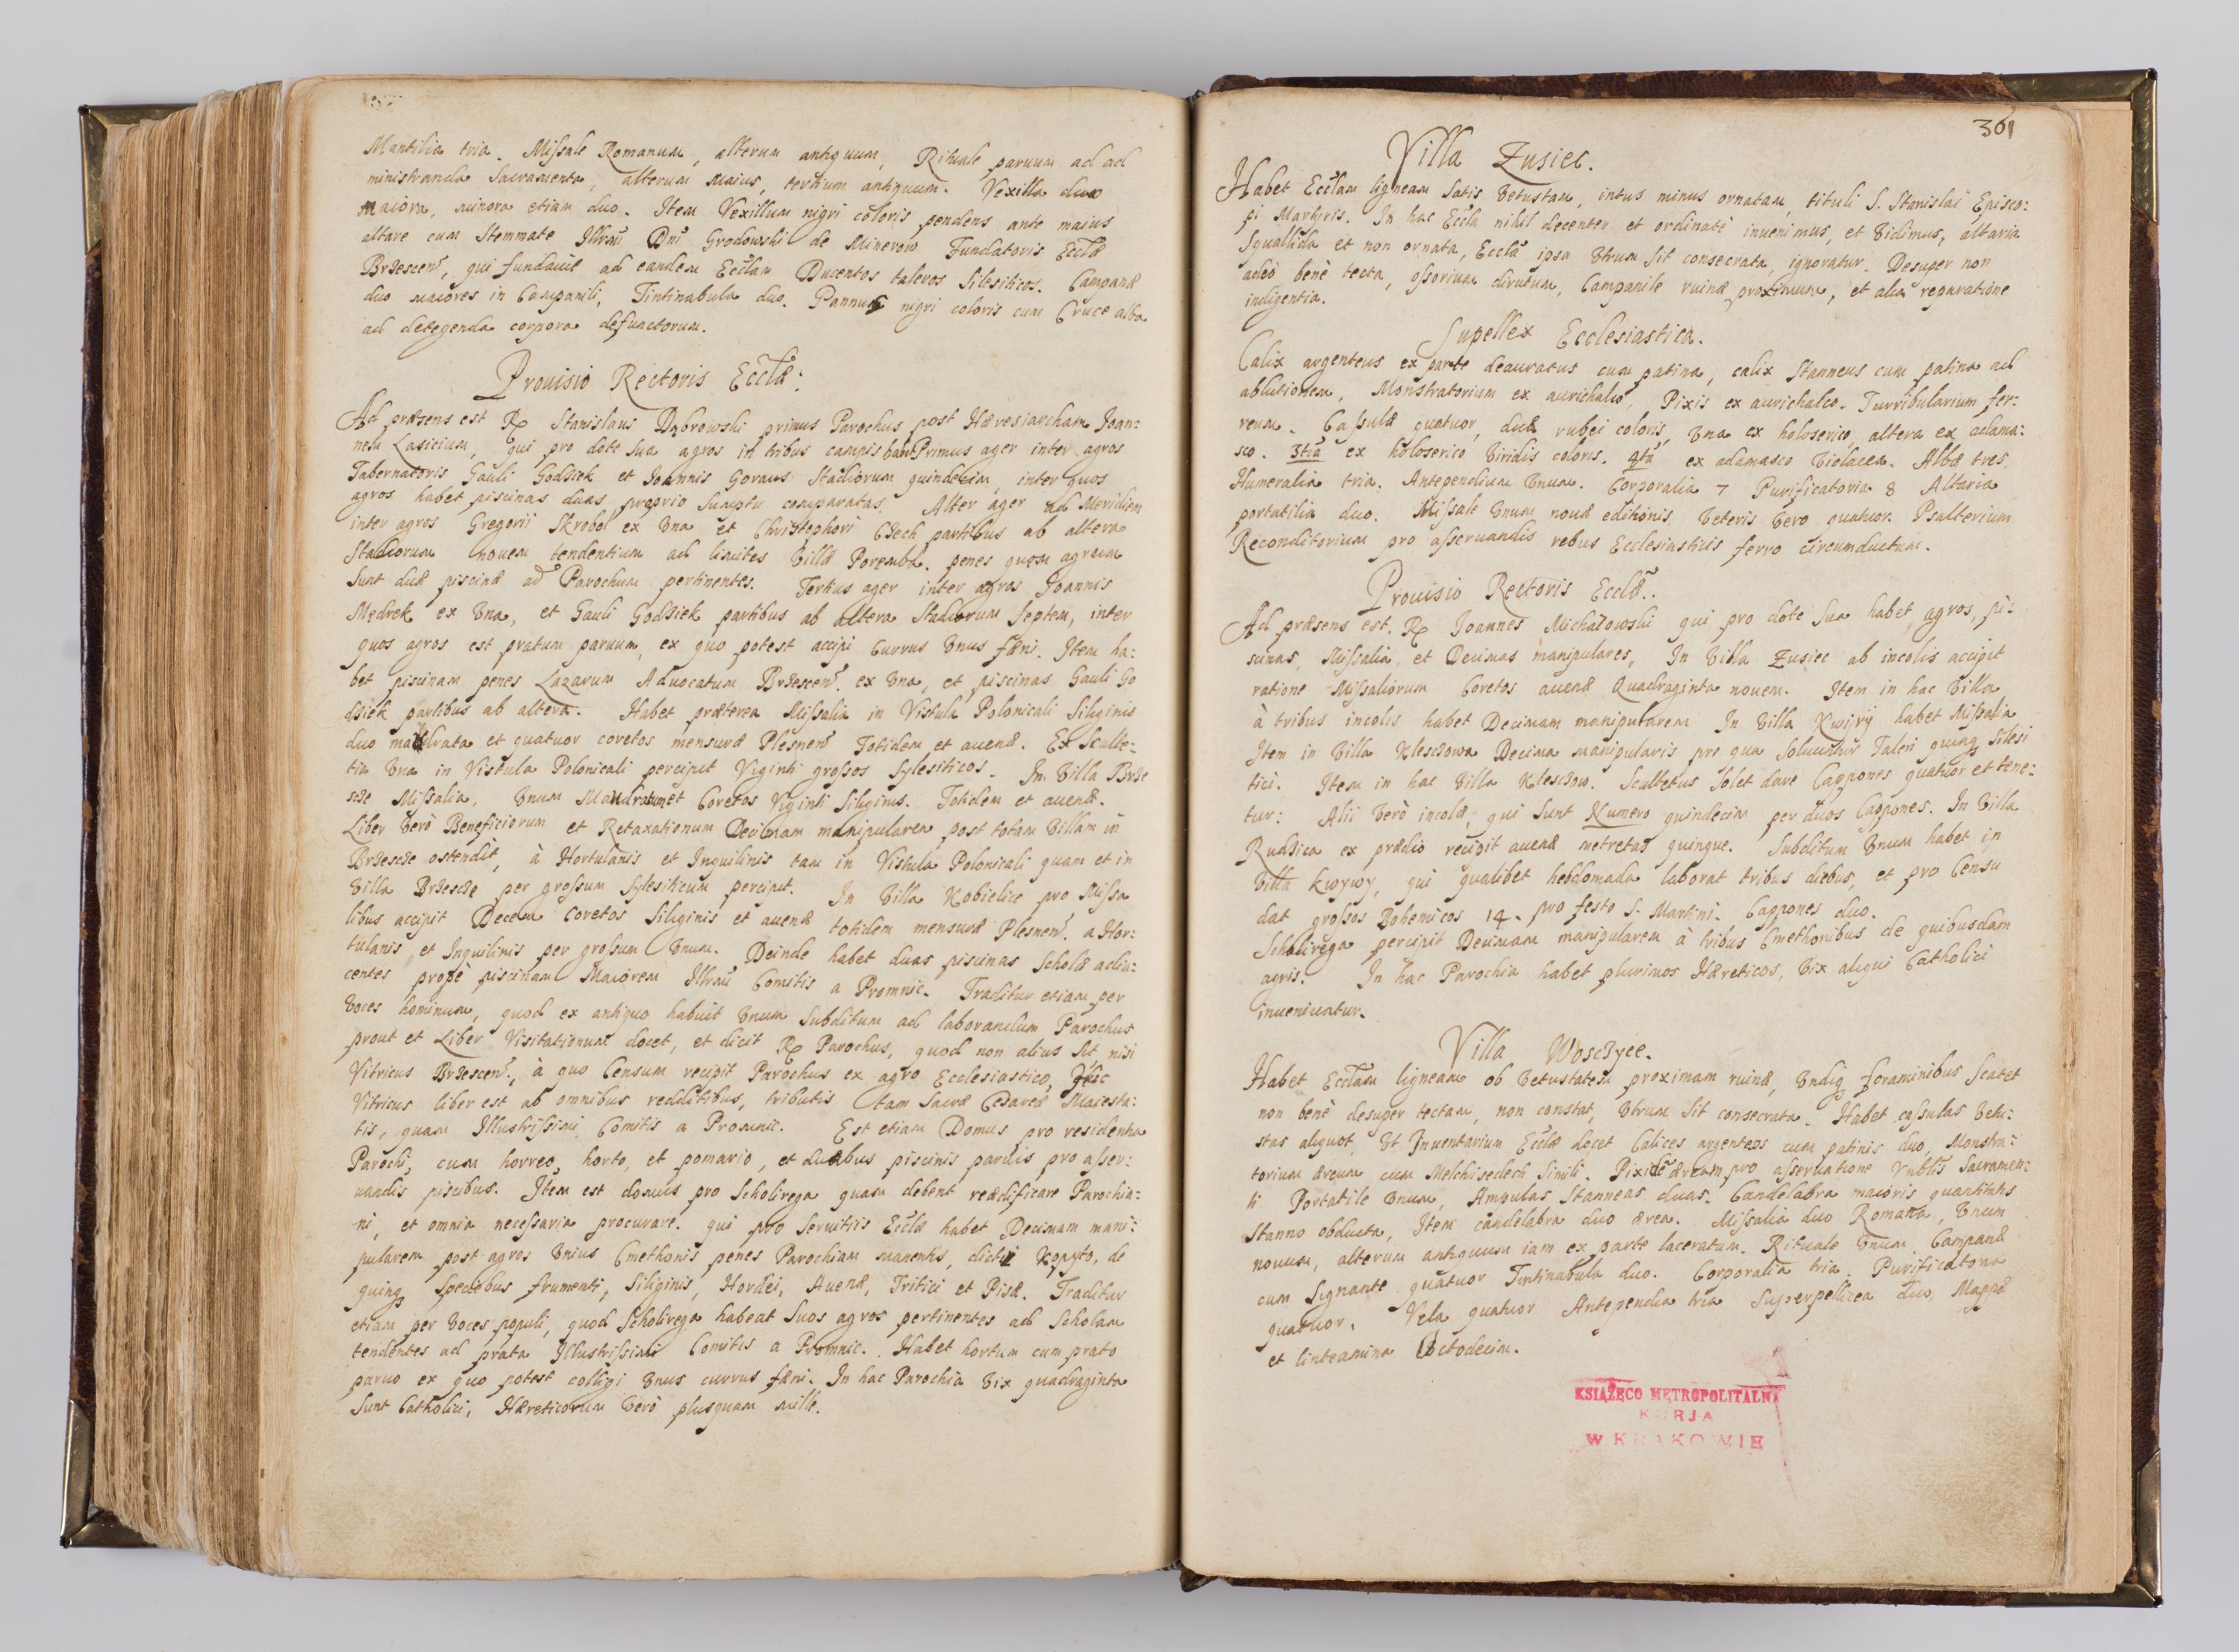 Mantilia tria. Missale Romanum, alterum antiquum, Rituale paruum ad ad
ministranda Sacramenta, alterum Maius, tertium antiquum. Vexilla duo
Maiora, minora etiam duo. Item Vexillum nigri coloris pendens ante maius
altare cum Stemmate Illrmi Dni Grodowski de Minerow Fundatoris Ecclae
Brzescen, qui fundauit ad eandem Ecclam Ducentos taleros Silesiticos. Campanae
duo maiores in Campanili, Tintinabula duo. Pannus nigri coloris cum Cruce alba
ad detegenda corpora defunctorum.
Prouisio Rectoris Ecclae:
Ad praesens est R Stanislaus Dąbrowski primus Parochus post Haeresiarcham Joan:
nem Lasicium, qui pro dote sua agros in tribus campis habet Primus ager inter agros
Tabernatoris Gauli Godziek et Joannis Goraus Stadiorum quindecim, inter quos
agros habet piscinas duas proprio sumptu comparatas. Alter ager ad Meridiem
inter agros Gregorii Skrobol ex Vna et Christophori Czech partibus ab altera
Stadiorum nouem tendentium ad limites Villae Poremba. penes quem agrum
sunt duae piscinae ad Parochum pertinentes. Tertius ager inter agros Joannis
Mędrek ex Vna, et Gauli Godziek partibus ab altera Stadiorum septem, inter
quos agros est pratum paruum, ex quo potest accipi Currus Vnus faeni. Item ha:
bet piscinam penes Lazarum Aduocatum Brzescen. ex Vna, et piscinas Gauli Go
dziek partibus ab altera. Habet praeterea Missalia in Vistula Polonicali Siliginis
duo maldrata et quatuor coretos mensurae Plesnen Totidem et auenae. Ex Sculte:
tia Vna in Vistula Polonicali percipit Viginti grossos Sylesiticos. In Villa Brze
scze Missalia, Vnum Maldratum et Coretos Viginti Siliginis. Totidem et auenae.
Liber Verò Beneficiorum et Retaxationum Decimam manipularem post totam Villam in
Brzescze ostendit, à Hortulanis et Inquilinis tam in Vistula Polonicali quam et in
Villa Brzescze per grossum Sylesiticum percipit. In Villa Kobielice pro Missa
libus accipit Decem Coretos Siliginis et auenae totidem mensurae Plesnen. a Hor:
tulanis et Inquilinis per grossum Vnum. Deinde habet duas piscinas Scholae adia:
centes propè piscinam Maiorem Illrmi Comitis a Promnic. Traditur etiam per
Voces hominum, quod ex antiquo habuit Vnum Subditum ad laborandum Parochus
prout et Liber Visitationum docet, et dicit R Parochus, quod non alius sit nisi
Vitricus Brzescen., à quo Censum recipit Parochus ex agro Ecclesiastico,
Vitricus liber est ab omnibus redditibus, tributis tam Sacrae Cesareae Maiesta:
tis, quam Illustrissimi Comitis a Promnic. Est etiam Domus pro residentia
Parochi, cum horreo, horto, et pomario, et duabus piscinis paruis pro asser:
uandis piscibus. Item est domus pro Scholirega quam debent reaedificare Parochia:
ni, et omnia necessaria procurare. qui pro seruitiis Ecclae habet Decimam mani:
pularem post agros Vnius Cmethonis penes Parochiam manentis, dicti Kopyto, de
quinq speciebus frumenti, Siliginis, Hordei, Auenae, Tritici et Pisae. Traditur
etiam per Voces populi, quod Scholirega habeat suos agros pertinentes ad Scholam
tendentes ad prata Illustrissimi Comitis a Promnic. Habet hortum cum prato
paruo ex quo potest colligi Vnus currus faeni. In hac Parochia Vix quadraginta
Sunt Catholici, Haereticorum Verò plusquam mille.
301
Villa Zusiec.
Habet Ecclam ligneam satis Vetustam, intus minus ornatam, tituli S. Stanislai Episco:
pi Martyris. In hac Eccla nihil decenter et ordinatè inuenimus, et Vidimus, altaria
squallida et non ornata, Eccla ipsa Vtrum sit consecrata, ignoratur. Desuper non
adeò benè tecta, ossorium dirutum, Campanile ruinae proximum, et alia reparatione
indigentia.
Supellex Ecclesiastica.
Calix argenteus ex parte deauratus cum patina, calix stanneus cum patina ad
ablutionem, Monstratorium ex aurichalco, Pixis ex aurichalco. Turribularium fer:
reum. Casulae quatuor, duae rubei coloris, Vna ex holoserico, altera ex adama:
sco. 3tia ex holoserico Viridis coloris. 4ta ex adamasco Violacea. Albae tres.
Humeralia tria. Antependium Vnum. Corporalia 7 Purificatoria 8 Altaria
portatilia duo. Missale Vnum nouae editionis, Veteris Vero quatuor. Psalterium
Reconditorium pro asseruandis rebus Ecclesiasticis ferro circumductum.
Prouisio Rectoris Ecclae.
Ad praesens est. R Joannes Michałowski qui pro dote sua habet agros, pi:
scinas, Missalia, et Decimas manipulares, In Villa Zusiec ab incolis accipit
ratione Missaliorum Coretos auenae Quadraginta nouem. Item in hac Villa
à tribus incolis habet Decimam manipularem In Villa habet Missalia
Item in Villa Klesczowa Decima manipularis pro qua soluuntur Taleri quinq Silesi
tici. Item in hac Villa Klesczow. Scultetus solet dare Cappones quatuor et tene:
tur: Alii Verò incolae, qui sunt Numero quindecim per duos Cappones. In Villa
Rudzica ex praedio recipit auenae metretas quinque. Subditum Vnum habet in
Villa Kwywy, qui qualibet hebdomada laborat tribus diebus, et pro Censu
dat grossos Bohemicos 14. pro festo S. Martini. Cappones duo.
Scholirega percipit Decimam manipularem à tribus Cmethonibus de quibusdam
agris. In hac Parochia habet plurimos Haereticos, Vix aliqui Catholici
inueniuntur.
Villa Wosczyce.
Habet Ecclam ligneam ob Vetustatem proximam ruinae, Vndiq foraminibus scatet
non benè desuper tectam, non constat, Vtrum sit consecrata. Habet casulas Vetu:
stas aliquot, Vt Inuentarium Ecclae docet Calices argenteos cum patinis duo, Monstra:
torium aereum cum Melchisedech simili. Pixidē aeream pro asseruatione Vnblis Sacramen:
ti Portatile Vnum, Ampulas Stanneas duas. Candelabra maioris quantitatis
stanno obducta, Item candelabra duo aerea. Missalia duo Romana, Vnum
nouum, alterum antiquum iam ex parte laceratum. Rituale Vnum. Campanae
cum Signante quatuor Tintinabula duo. Corporalia tria. Purificatoria
quatuor. Vela quatuor Antependia tria Superpellicea duo, Mappae
et linteamina Octodecim.
KSIĄŻĘCO METROPOLITALNA
KURJA
W KRAKOWIE